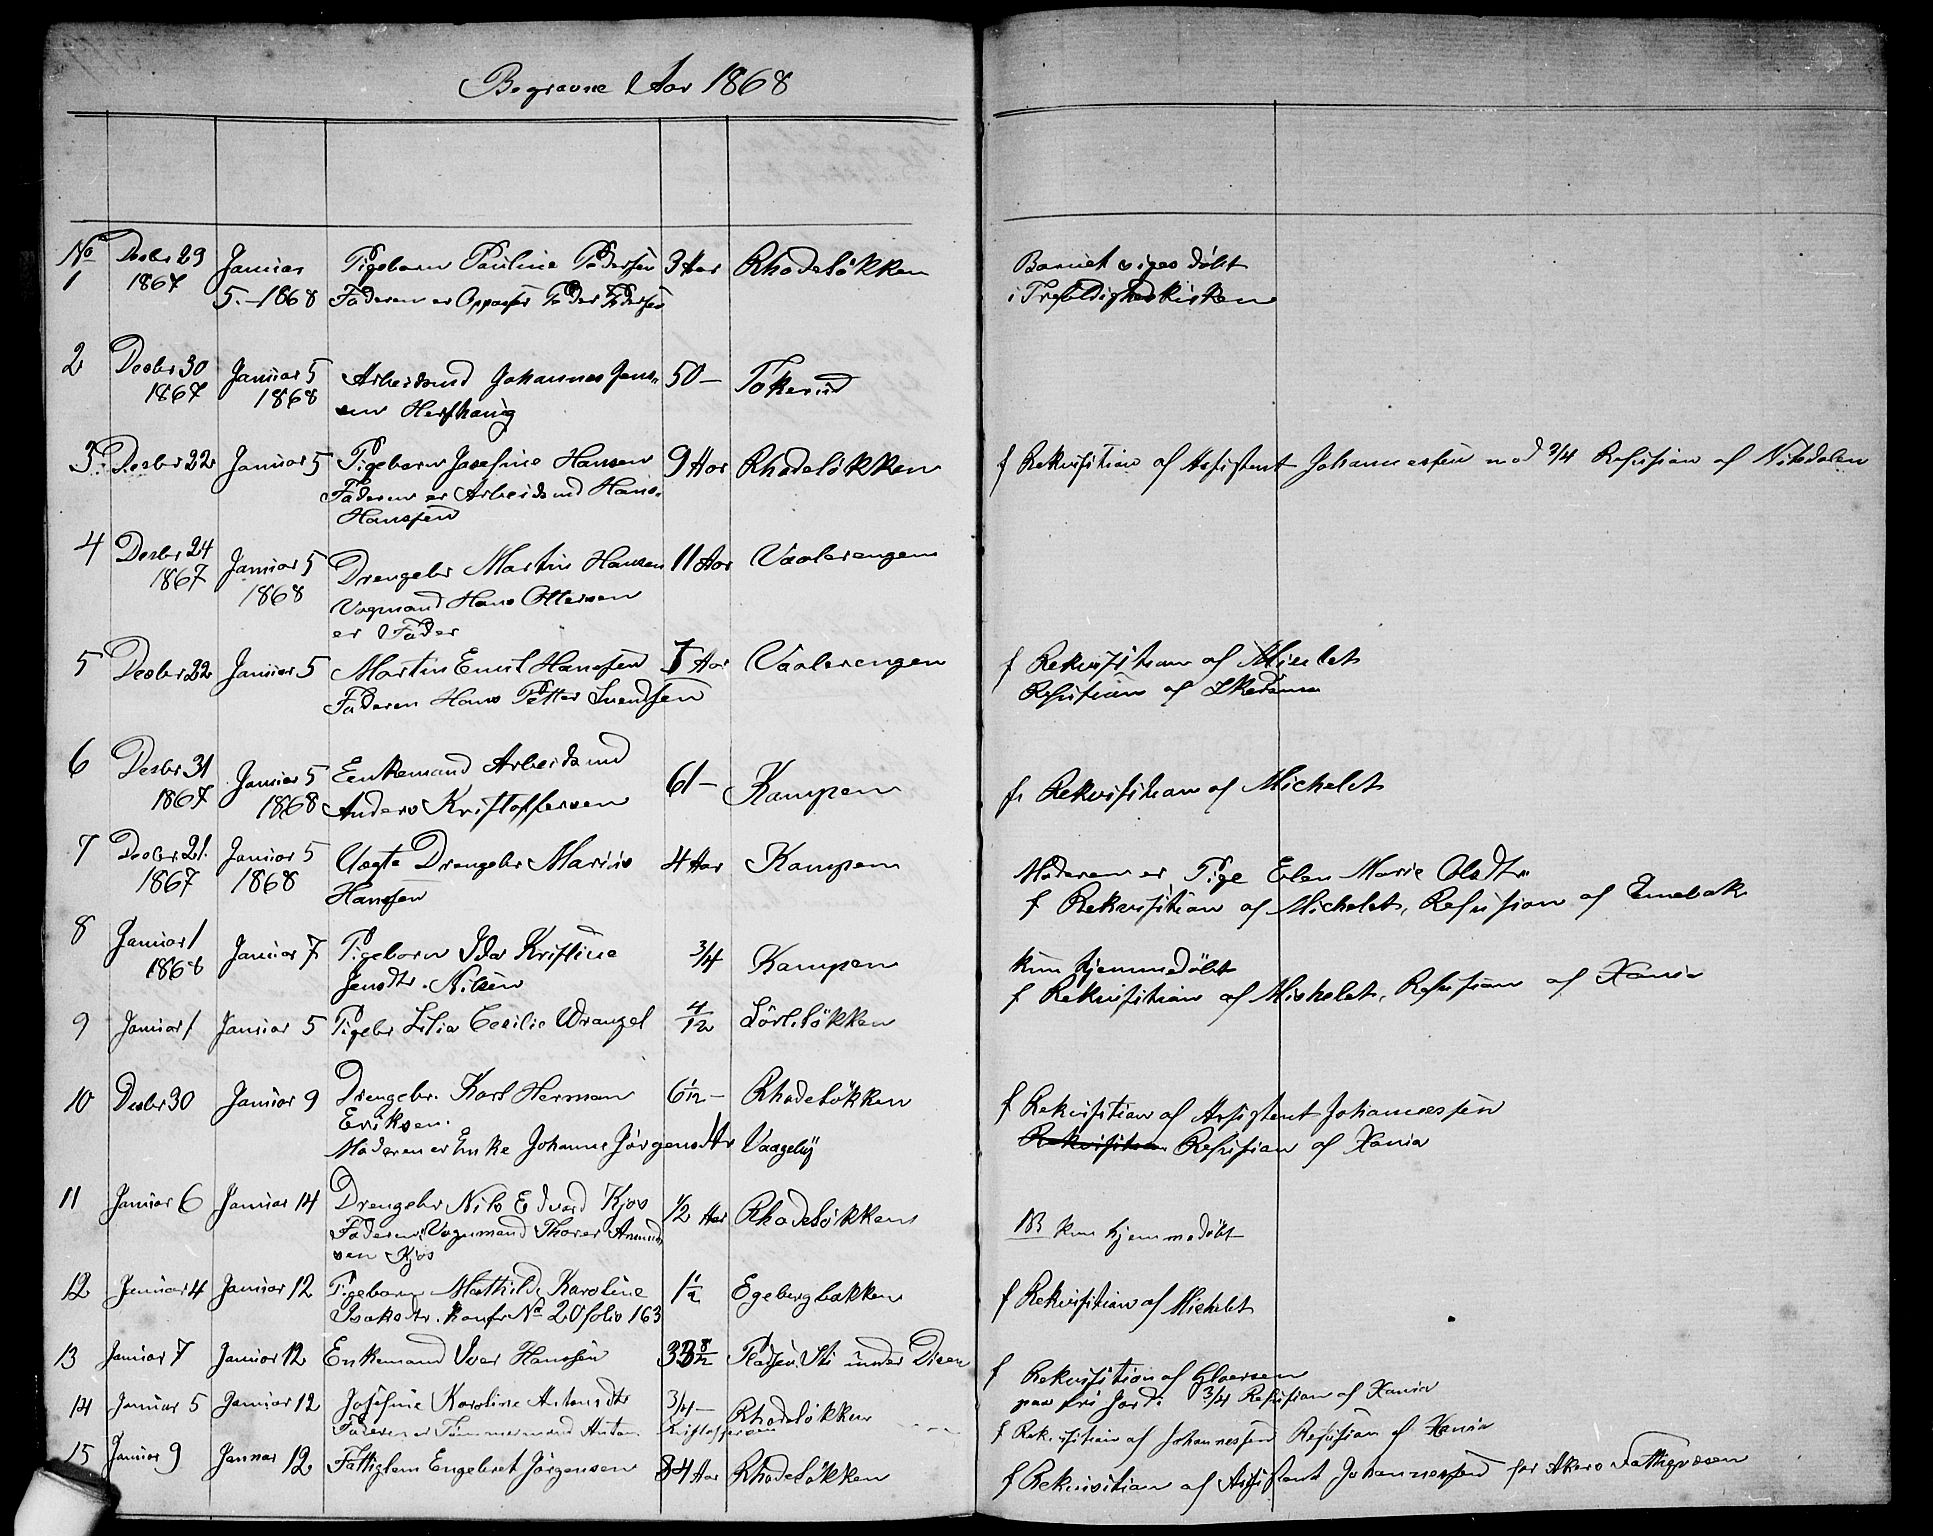 Begravne Aar 1868
No 1 Desbr 29 1867 Januar 5.-1868 Pigebarn Pauline Pedersen 3 Aar Rhodeløkken
Faderen er Peder Pedersen
Barnet siges døbt
i Trefoldighedskirken
2 Desbr 30 1867 Januar 5 1868 Arbeidsmd Johannes Jens-
sen 50- Tøkerud
3. Desbr 22 Januar 5 Pigebarn Josefine Hansen 9 Aar Rhodeløkken f Rekvisition af Assistent Johannessen med 3/4 Refusion af Nitedalen
Faderen er Arbeidsmd Hans
Hanssen
4 Desbr 24 1867 Januar 5 1868 Drengebr Martin Hansen 11 Aar Vaalerengen
Vogmand Hans Ottersen
er Fader
5 Desbr 22 Januar 5 Martin Emil Hanssen Aar Vaalerengen f Rekvisition af Michelet
Faderen Hans Petter Svendsen Refusion af
6 Desbr 31 1867 Januar 5 1868 Enkemand Arbeidsmd 61- Kampen f. Rekvisition af Michelet
Anders Kristoffersen
7 Desbr 21. 1867 Januar 5 1868 Uægte Drengebr Marius 4 Aar Kampen Moderen er Pige Elen Marie Olsdtr
Hanssen f Rekvisition af Michelet, Refusion af Enebak
8 Januar 1 1868 Januar 7 Pigebarn Ida Kristine 3/4 Kampen kun hjemmedøbt
Jensdtr. Nilsen f Rekvisition af Michelet, Refusion af Xania
9 Januar 1 Januar 5 Pigebr Lilia Cecilie Wrangel 4/12 Sørliløkken
10 Desbr 30 Januar 9 Drengebr. Karl Herman 6 1/12 - Rhodeløkken f Rekvisition af Assistent Johannessen
Eriksen. Rekvisition Refusion af Xania
Moderen er Enke Johanne Jørgensdtr Vaagebÿ
11 Januar 6 Januar 14 Drengebr Nils Edvard Kjos 1/2 Aar Rhodeløkken kun hjemmedøbt
Faderen: Vogmand Thorer Amund-
sen Kjos
12 Januar 4 Januar 12 Pigebarn Mathilde Karoline 1 1/2 Egebergbakken f Rekvisition af Michelet
Isaksdtr. Konfr No 20 folio 163
13 Januar 7 Januar 12 Enkemand Iver Hanssen 33 8/12 Pladsen Sti under Disen f Rekvisition af Gloersen
paa fri Jord. 3/4 Refusion af Xania
14 Januar 5 Januar 12 Josefine Karoline Antonsdtr 3/4- Rhodeløkken f Rekvisition af Johannessen Refusion af Xania
Faderen er Tømmermand Anton Kristoffersen
15 Januar 9 Januar 12 Fattiglem Engebret Jørgensen 84 Aar Rhodeløkken f Rekvisition af Assistent Johannessen for Akers Fattigvæsen